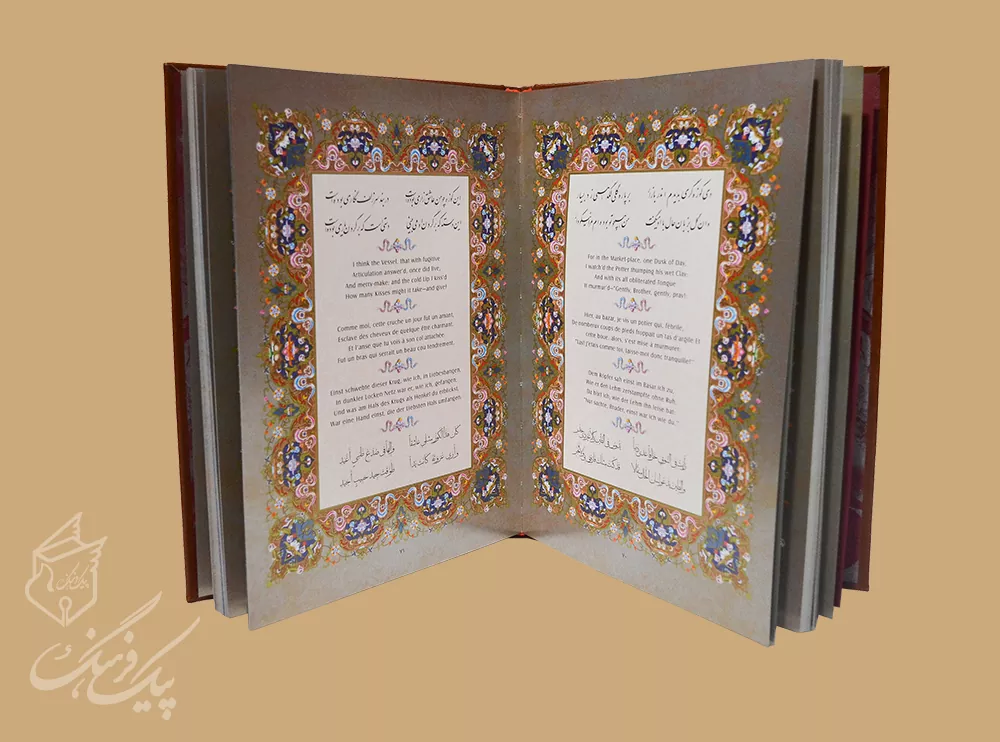 دی کوزه‌گری بدیدم اندر بازار بر پاره گلی لگد همی زد بسیار
و آن گل بزبان حال با او میگفت من همچو تو بوده‌ام مرا نیکو دار
For in the Market-place, one Dusk of Day,
I watch'd the Potter thumping his wet Clay:
And with its all obliterated Tongue
It murmur'd-"Gently, Brother, gently, pray!
Hier, au bazar, je vis un potier qui, fébrile,
De nombreux coups de pieds frappait un tas d'argile Et
cette boue, alors, s'est mise à murmurer:
"Sail j'étais comme toi, laisse-moi donc tranquille!"
Dem Töpfer sah einst im Basar ich zu,
Wie er den Lehm zerstampfte ohne Ruh.
Da hört ich, wie der Lehm ihn leise bat:
"Nur sachte, Bruder, einst war ich wie du."
۷۰
این کوزه چو من عاشق زاری بوده است در بند سر زلف نگاری بوده است
این دسته که بر گردن او می‌بینی دستی است که بر گردن یاری بوده است
I think the Vessel, that with fugitive
Articulation answer'd, once did live,
And merry-make; and the cold Lip I kiss'd
How many Kisses might it take-and give!
Comme moi, cette cruche un jour fut un amant,
Esclave des cheveux de quelque être charmant.
Et l'anse que tu vois à son col attachée,
Fut un bras qui serrait un beau cou tendrement.
Einst schwebte dieser Krug, wie ich, in Liebesbangen,
In dunkler Locken Netz war er, wie ich, gefangen,
Und was am Hals des Krugs als Henkel du erblickst,
War eine Hand einst, die der Liebsten Hals umfangen.
كان هذا الكوز مثلي عاشقاً والهاً في صدغ ظبي أغيد
وأرى عروته كانت يداً طوقت جيد حبيب أجيد
۷۱
پیک فرهنگ